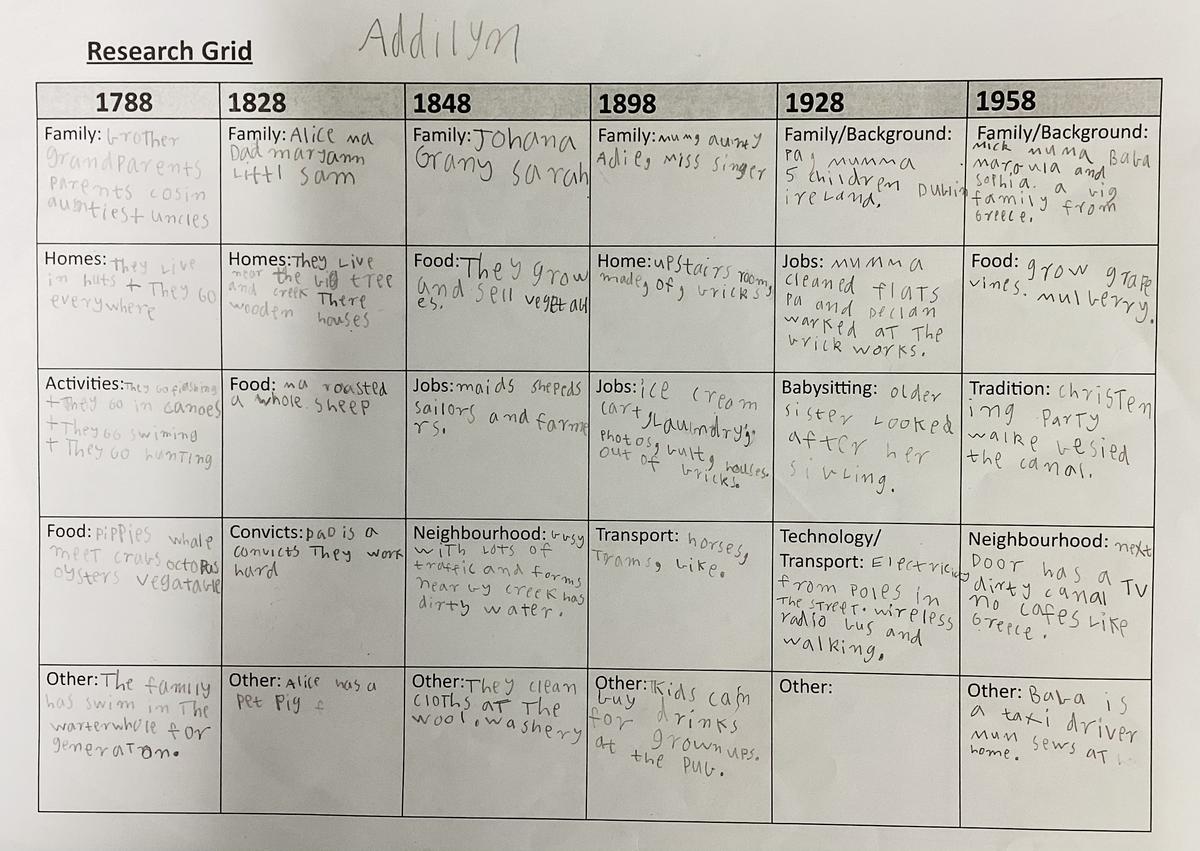 Research Grid
Addilyn
1788
1828
1848
1898
1928
1958
Family: brother
grandparents
parents cosin
aunties + uncles
Family: Alice ma
Dad maryann
Littl sam
Family: Johana
Grany sarah
Family: mum, aunty
Adie, miss singer
Family/Background:
Pa, mumma
5 children Dublin
ireland.
Family/Background:
Mick muma Baba
maroula and
sophia. a big
family from
Greece.
Homes: They Live
in huts + They Go
everywhere
Homes: They Live
near the big tree
and creek There
wooden houses
Food: They grow
and sell vegetabl
es.
Home: upstairs rooms
made, of, bricks
Jobs: mumma
cleaned flats
Pa and Declan
warked at The
brick works.
Food: grow grape
vines. mulberry.
Activities: They Go fishing
+ They Go in canoes
+ They Go swiming
+ They Go hunting
Food: ma roasted
a whole sheep
Jobs: maids shepeds
sailors and farme
rs.
Jobs: ice cream
cart, Laundry,
Photos, bult, houses.
out of bricks.
Babysitting: older
sister Looked
after her
sibling.
Tradition: christen
ing Party
walke besied
the canal.
Food: Pippies whale
meet crabs octopas
oysters vegatable
Convicts: Dad is a
convicts They work
hard
Neighbourhood: busy
with Lots of
traffic and forms
near by creek has
dirty water.
Transport: horses,
Trams, bike.
Technology/
Transport: Electricity
from Poles in
The street. wireless
radio bus and
walking.
Neighbourhood: next
Door has a TV
dirty canal
no cafes Like
Greece.
Other: The family
has swim in The
warterwhole for
generaton.
Other: Alice has a
pet Pig
Other: They clean
cloths at The
wool. washery
Other: Kids can
buy drinks
for grownups.
at the Pub.
Other:
Other: Baba is
a taxi driver
mum sews at
home.